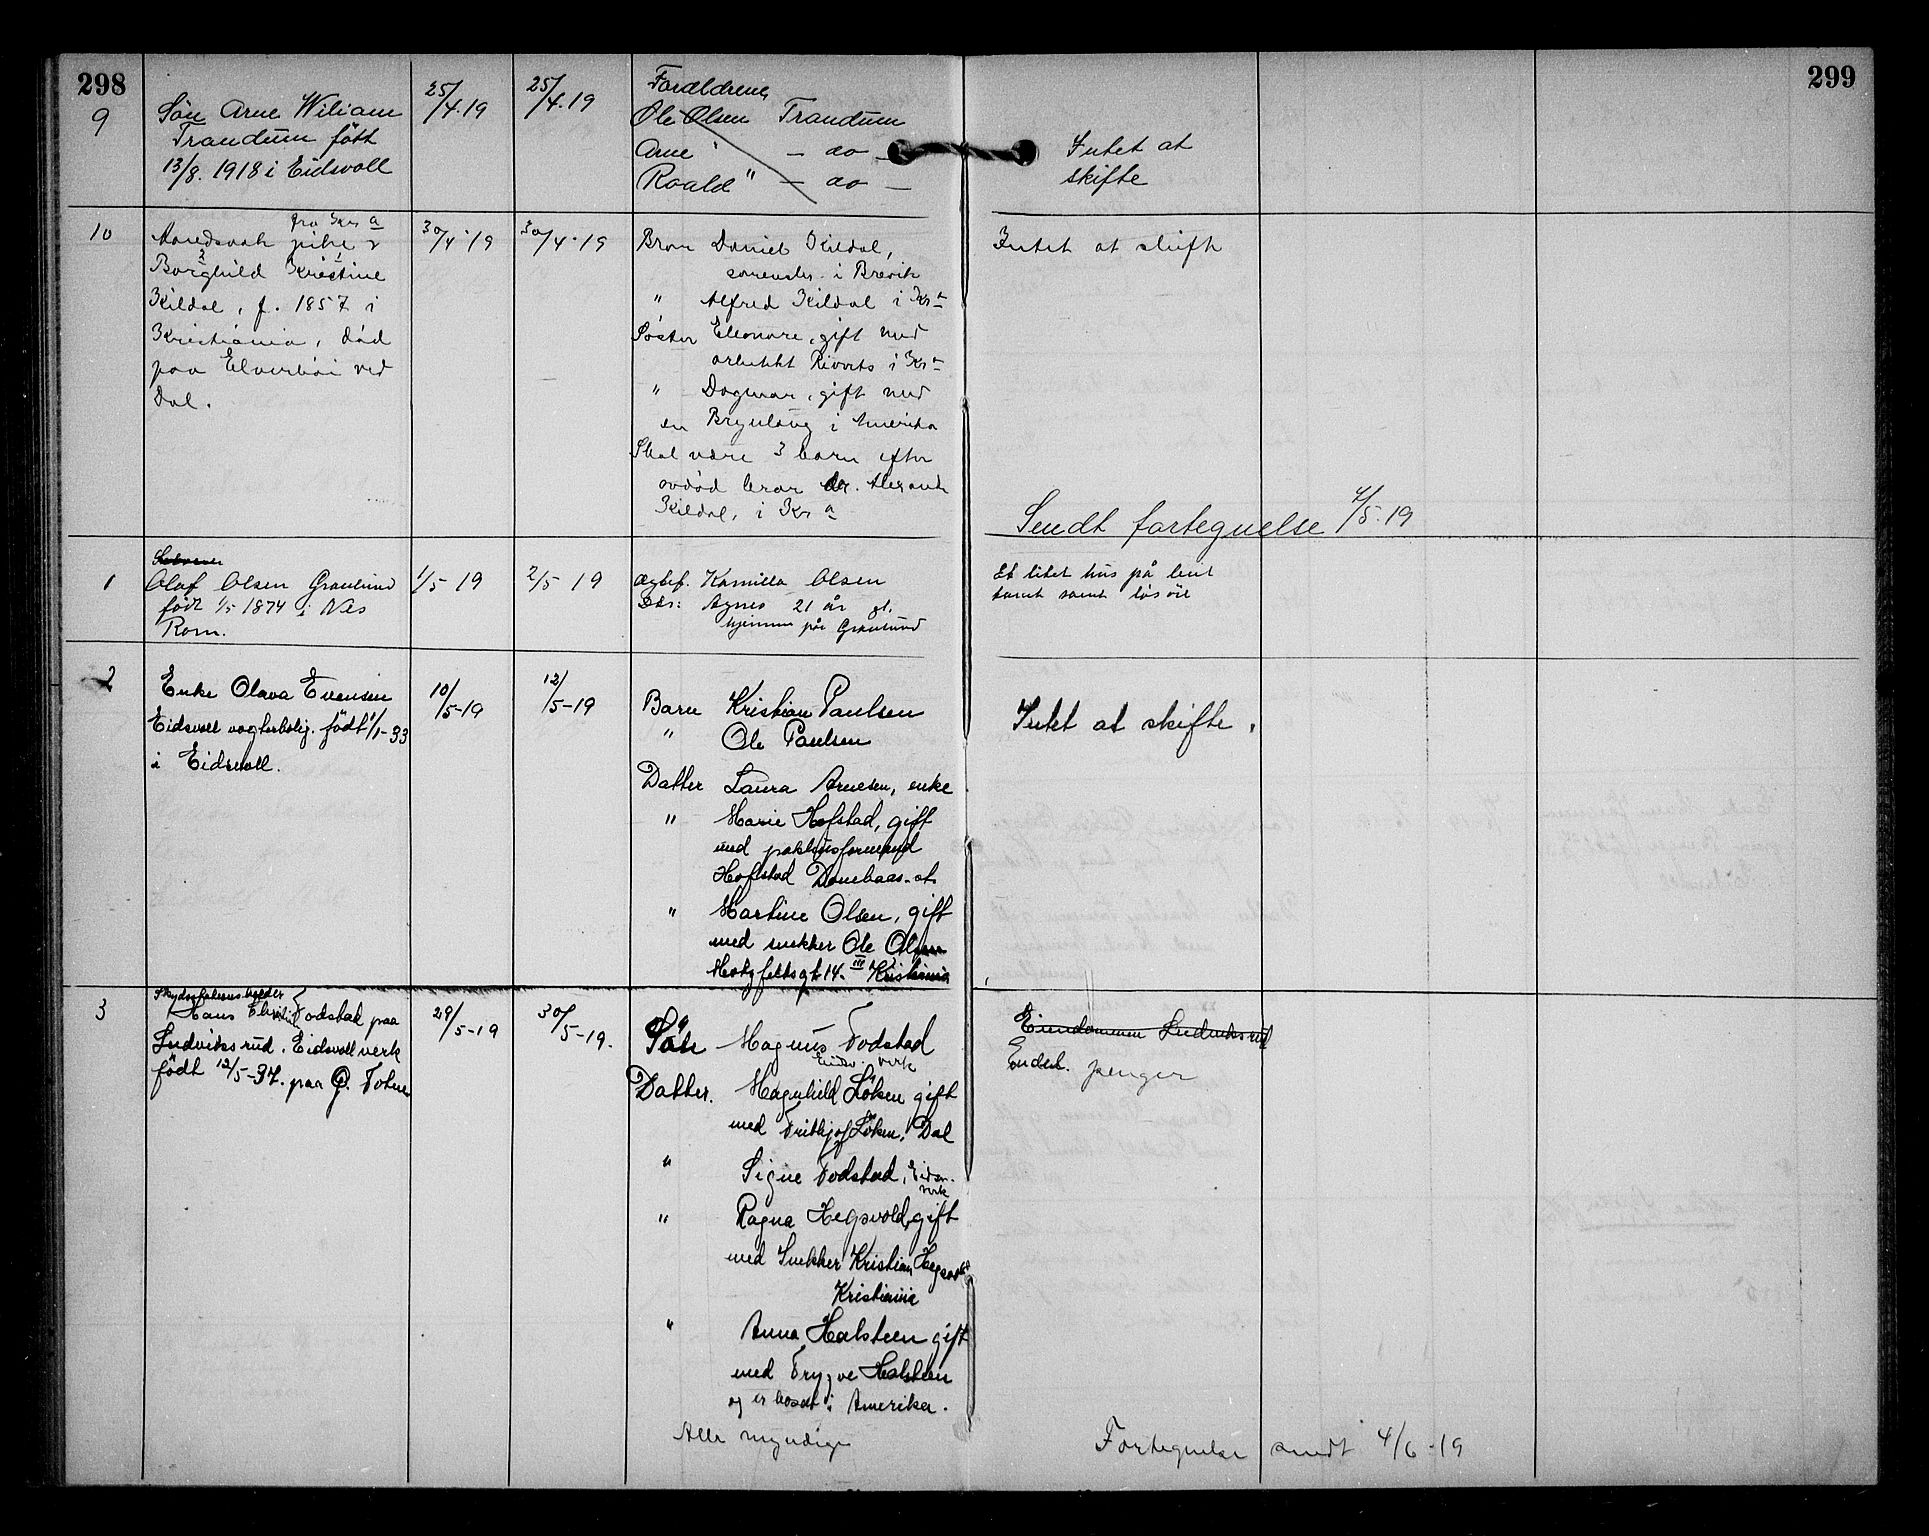 298
299
9
Søn Arne Wiliam
Trandum født
13/8. 1918 i Eidsvoll
25/4.19
25/4.19
Forældrene
Ole Olsen Trandum
Arne " — do —
Roald " — do —
Intet at
skifte
10
fra Kra
pike
Borghild Kristine
Kildal, f. 1857 i
Kristiania, død
paa Elverhöi ved
Dal.
30/4.19
30/4.19
Bror Daniel Kildal,
sorenskr. i Brevik
" Alfred Kildal i Kra
Søster Eleonore, gift med
arkitekt i Kra
" Dagmar, gift med
en i Amerika
Skal være 3 barn efter
avdød bror dr.
Kildal, i Kra
Intet at skifte
Sendt fortegnelse 4/5.19
1
Olaf Olsen Granlund
født 1/5 1874 i Nes
Rom.
1/5 19
2/5 19
Kamilla Olsen
Agnes 21 år gl.
hjemme på Granlund
Et litet hus på leiet
tomt samt løsöre
2
Enke Olava Evensen
Eidsvoll vogterbolig. født 1/1-33
i Eidsvoll.
10/5-19
12/5-19
Barn Kristian Paulsen
" Ole Paulsen
Datter Laura Arnesen, enke
" Marie Hofstad, gift
med pakhusformand
Hofstad Dombaas st.
" Martine Olsen, gift
med snekker Ole Olsen
Motzfeltsgt 14. III Kristiania
Intet at skifte.
3
Hans Fodstad paa
Ludviksrud. Eidsvoll verk
født 12/5-37. paa Ø. Toten
29/5-19
30/5-19.
Søn Magnus Fodstad
Eidsv. verk
Datter. Magnhild Løken gift
med Frithjof Løken, Dal
" Signe Fodstad, Eidsv.
verk
" Ragna Hegsvold, gift
med Snekker Kristian Hegsvold
Kristiania
" Anna Halsteen gift
med Trygve Halsteen
og er bosat i Amerika.
Alle myndige
Eiendommen Ludviksrud
Endel. penger
Fortegnelse sendt 4/6-19